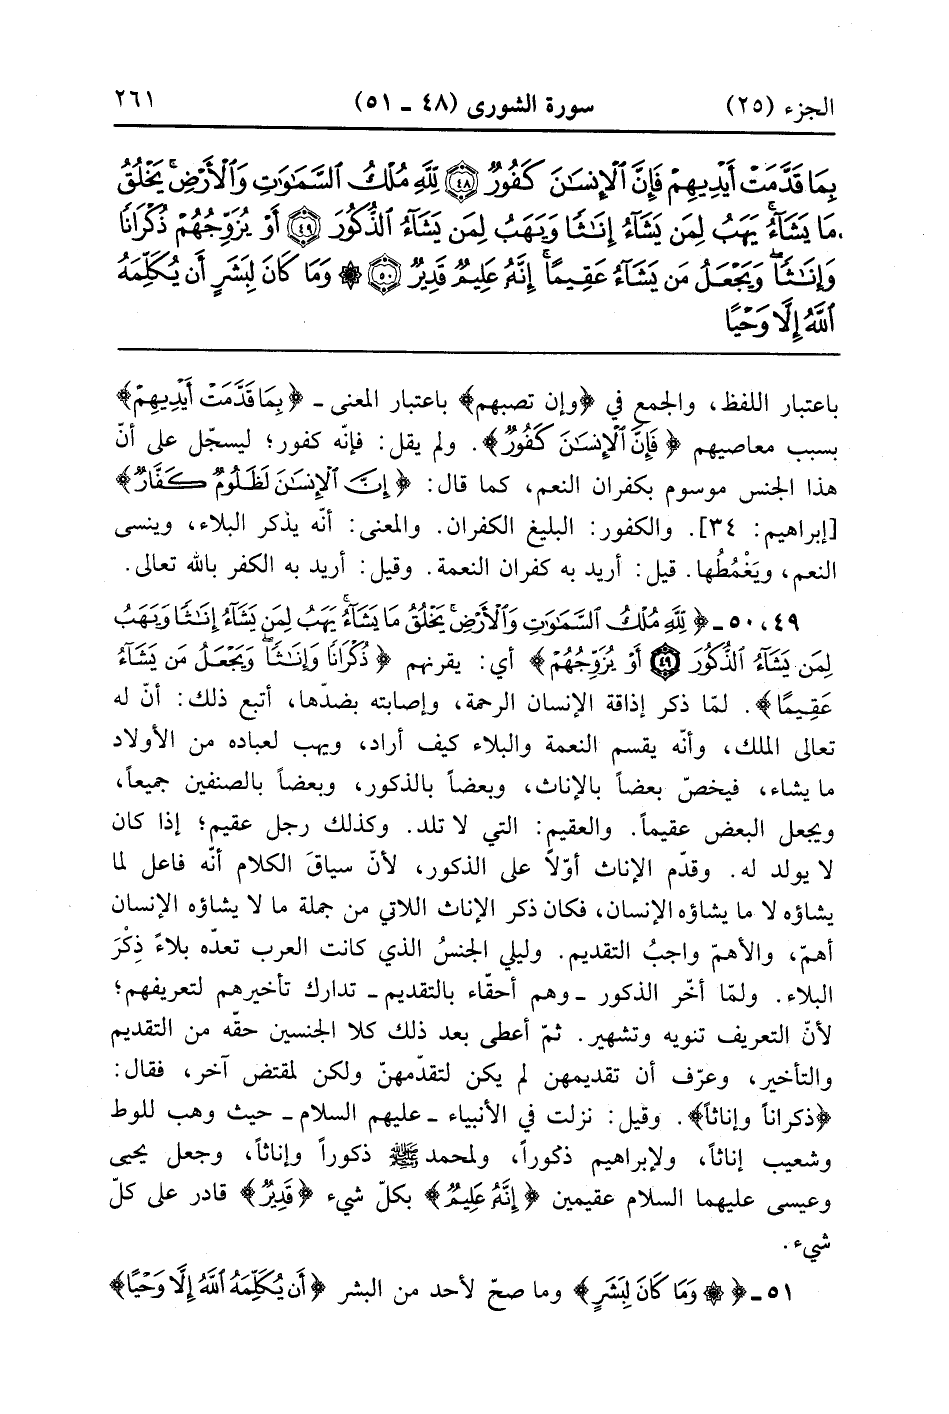 الجزء (٢٥)
سورة الشورى (٤٨ - ٥١)
٢٦١
بِمَا قَدَّمَتْ أَيْدِيهِمْ فَإِنَّ ٱلْإِنسَٰنَ كَفُورٌ ﴿٤٨﴾ لِلَّهِ مُلْكُ ٱلسَّمَٰوَٰتِ وَٱلْأَرْضِ ۚ يَخْلُقُ
مَا يَشَآءُ ۚ يَهَبُ لِمَن يَشَآءُ إِنَٰثًا وَيَهَبُ لِمَن يَشَآءُ ٱلذُّكُورَ ﴿٤٩﴾ أَوْ يُزَوِّجُهُمْ ذُكْرَانًا
وَإِنَٰثًا ۖ وَيَجْعَلُ مَن يَشَآءُ عَقِيمًا ۚ إِنَّهُۥ عَلِيمٌ قَدِيرٌ ﴿٥٠﴾ ۞ وَمَا كَانَ لِبَشَرٍ أَن يُكَلِّمَهُ
ٱللَّهُ إِلَّا وَحْيًا
باعتبار اللفظ، والجمع في ﴿وإن تصبهم﴾ باعتبار المعنى - ﴿بِمَا قَدَّمَتْ أَيْدِيهِمْ﴾
بسبب معاصيهم ﴿فَإِنَّ ٱلْإِنسَٰنَ كَفُورٌ﴾. ولم يقل: فإنّه كفور؛ ليسجّل على أنّ
هذا الجنس موسوم بكفران النعم، كما قال: ﴿إِنَّ ٱلْإِنسَٰنَ لَظَلُومٌ كَفَّارٌ﴾
[إبراهيم: ٣٤]. والكفور: البليغ الكفران. والمعنى: أنّه يذكر البلاء، وينسى
النعم، ويَغْمُطُها. قيل: أريد به كفران النعمة. وقيل: أريد به الكفر بالله تعالى.
٤٩، ٥٠ - ﴿لِلَّهِ مُلْكُ ٱلسَّمَٰوَٰتِ وَٱلْأَرْضِ ۚ يَخْلُقُ مَا يَشَآءُ ۚ يَهَبُ لِمَن يَشَآءُ إِنَٰثًا وَيَهَبُ
لِمَن يَشَآءُ ٱلذُّكُورَ ﴿٤٩﴾ أَوْ يُزَوِّجُهُمْ﴾ أي: يقرنهم ﴿ذُكْرَانًا وَإِنَٰثًا ۖ وَيَجْعَلُ مَن يَشَآءُ
عَقِيمًا﴾. لمّا ذكر إذاقة الإنسان الرحمة، وإصابته بضدّها، أتبع ذلك: أنّ له
تعالى الملك، وأنّه يقسم النعمة والبلاء كيف أراد، ويهب لعباده من الأولاد
ما يشاء، فيخصّ بعضاً بالإناث، وبعضاً بالذكور، وبعضاً بالصنفين جميعاً،
ويجعل البعض عقيماً. والعقيم: التي لا تلد. وكذلك رجل عقيم؛ إذا كان
لا يولد له. وقدّم الإناث أوّلاً على الذكور، لأنّ سياقَ الكلام أنّه فاعل لما
يشاؤه لا ما يشاؤه الإنسان، فكان ذكر الإناث اللاتي من جملة ما لا يشاؤه الإنسان
أهمّ، والأهمّ واجبُ التقديم. وليلي الجنسُ الذي كانت العرب تعدّه بلاءً ذِكْرَ
البلاء. ولمّا أخّر الذكور - وهم أحقّاء بالتقديم - تدارك تأخيرهم لتعريفهم؛
لأنّ التعريف تنويه وتشهير. ثمّ أعطى بعد ذلك كلا الجنسين حقّه من التقديم
والتأخير، وعرّف أن تقديمهن لم يكن لتقدّمهنّ ولكن لمقتض آخر، فقال:
﴿ذكراناً وإناثاً﴾. وقيل: نزلت في الأنبياء - عليهم السلام - حيث وهب للوط
وشعيب إناثاً، ولإبراهيم ذكوراً، ولمحمد ﷺ ذكوراً وإناثاً، وجعل يحيى
وعيسى عليهما السلام عقيمين ﴿إِنَّهُۥ عَلِيمٌ﴾ بكلّ شيء ﴿قَدِيرٌ﴾ قادر على كلّ
شيء.
٥١ - ﴿۞ وَمَا كَانَ لِبَشَرٍ﴾ وما صحّ لأحد من البشر ﴿أَن يُكَلِّمَهُ ٱللَّهُ إِلَّا وَحْيًا﴾